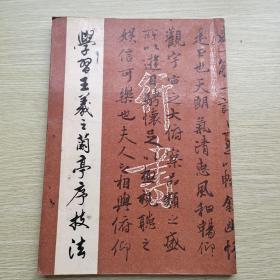 學習王羲之蘭亭序技法
行書
是日也天朗氣清惠風和暢仰
觀宇宙之大俯察品類之盛
所以遊目騁懷足以極視聽之
娛信可樂也夫人之相與俯仰